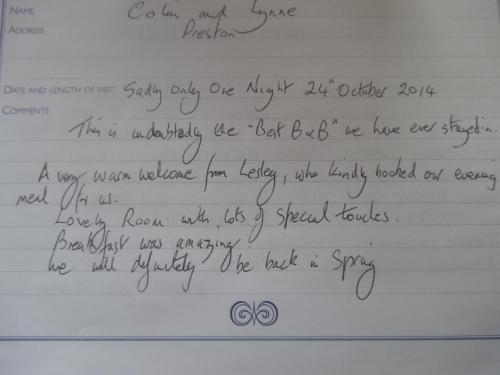 NAME Colin and Lynne
ADDRESS Preston
DATE AND LENGTH OF VISIT Sadly Only One Night 24th October 2014
COMMENTS
This is undoubtedly the "Best B&B" we have ever stayed in.
A very warm welcome from Lesley, who kindly booked our evening
meal for us.
Lovely Room with lots of special touches.
Breakfast was amazing!
We will definitely be back in Spring